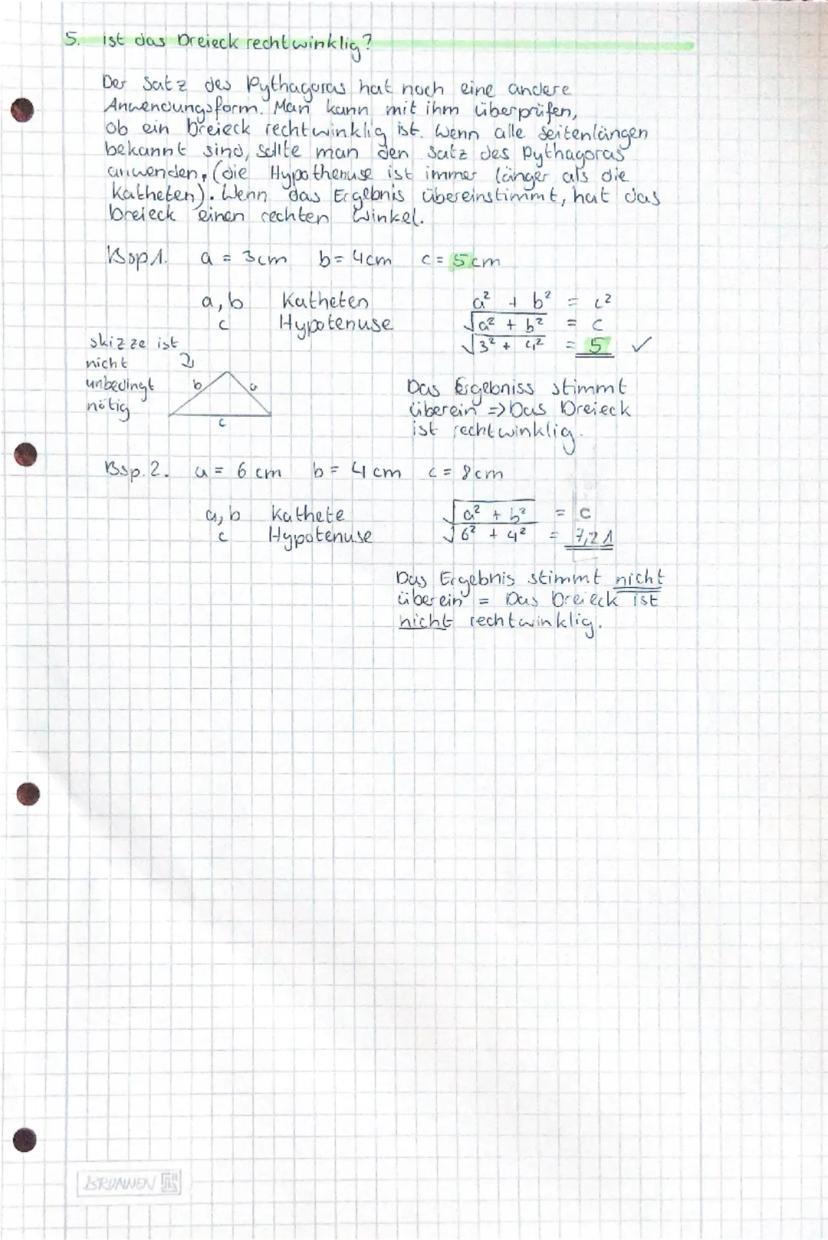 5. ist das Dreieck rechtwinklig?
Der Satz des Pythagoras hat noch eine andere
Anwendungsform. Man kann mit ihm überprüfen,
ob ein Dreieck rechtwinklig ist. Wenn alle Seitenlängen
bekannt sind, sollte man den Satz des Pythagoras
anwenden, (die Hypothenuse ist immer länger als die
Katheten). Wenn das Ergebnis übereinstimmt, hat das
Dreieck einen rechten Winkel.
Bsp1. a = 3cm b = 4cm c = 5cm
a, b Katheten
c Hypotenuse
a² + b² = c²
√a² + b² = c
√3² + 4² = 5 ✓
skizze ist
nicht
unbedingt
nötig
b a
c
Das Ergebniss stimmt
überein => Das Dreieck
ist rechtwinklig.
Bsp. 2. a = 6 cm b = 4 cm c = 8cm
a, b Kathete
c Hypotenuse
√a² + b² = c
√6² + 4² = 7,21
Das Ergebnis stimmt nicht
überein = Das Dreieck ist
nicht rechtwinklig.
BRUNNEN